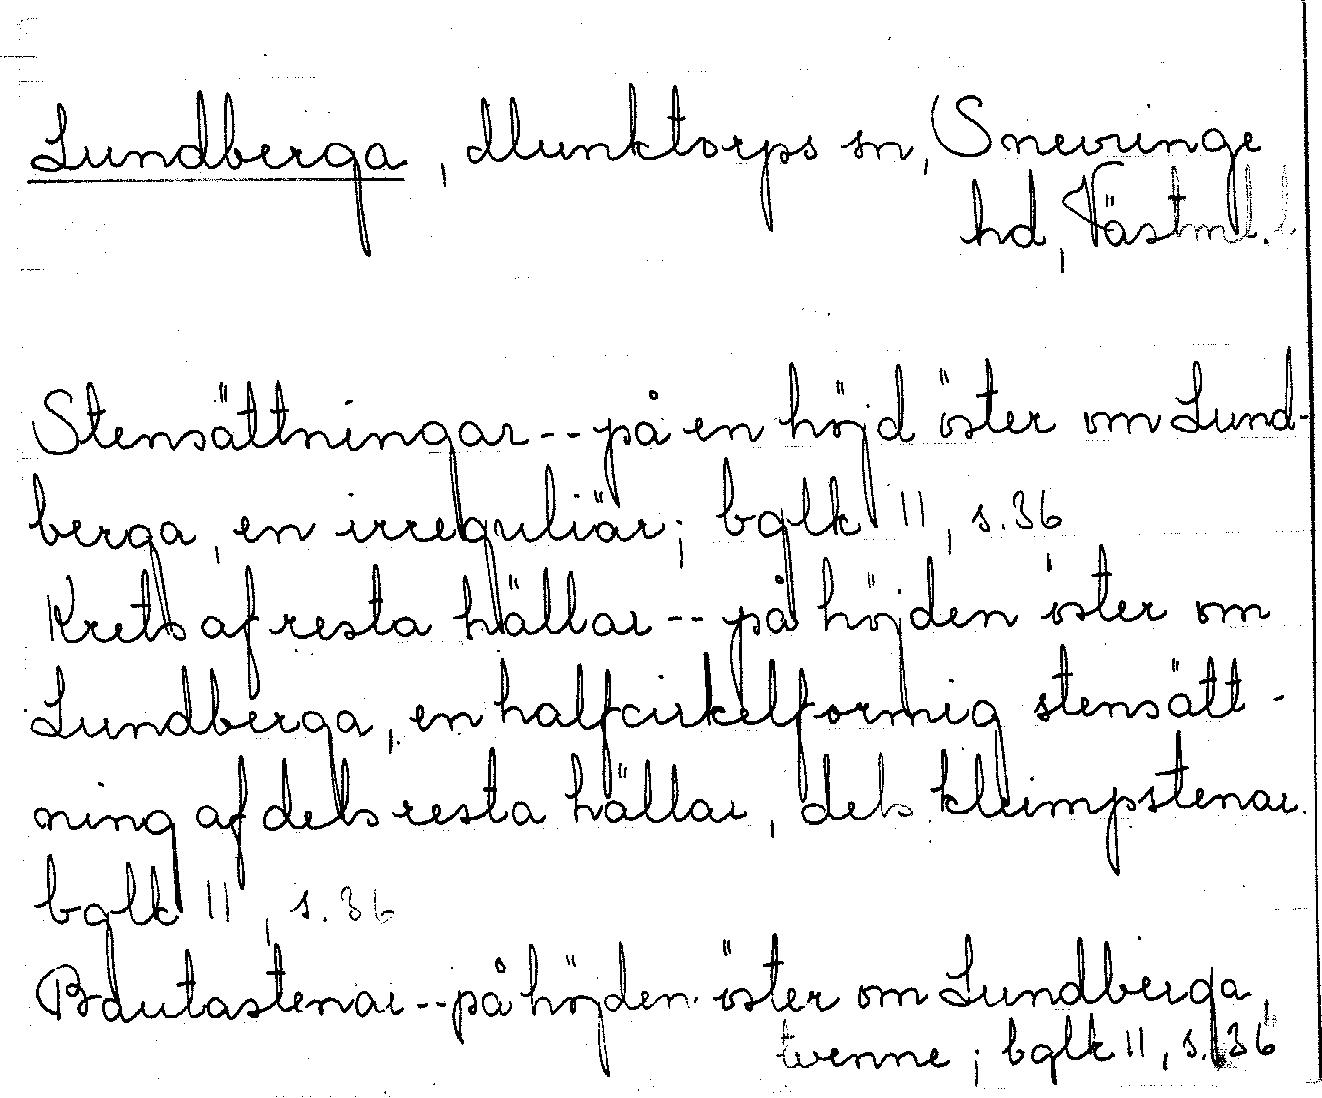 Lundberga, Munktorps sn, Snevringe
hd, Västml.
Stensättningar -- på en höjd öster om Lund-
berga, en irreguliär; bglk 11, s. 36
Krets af resta hällar -- på höjden öster om
Lundberga, en halfcirkelformig stensätt-
ning af dels resta hällar, dels klumpstenar.
bglk 11, s. 36
Bautastenar -- på höjden öster om Lundberga,
tvenne; bglk 11, s. 36